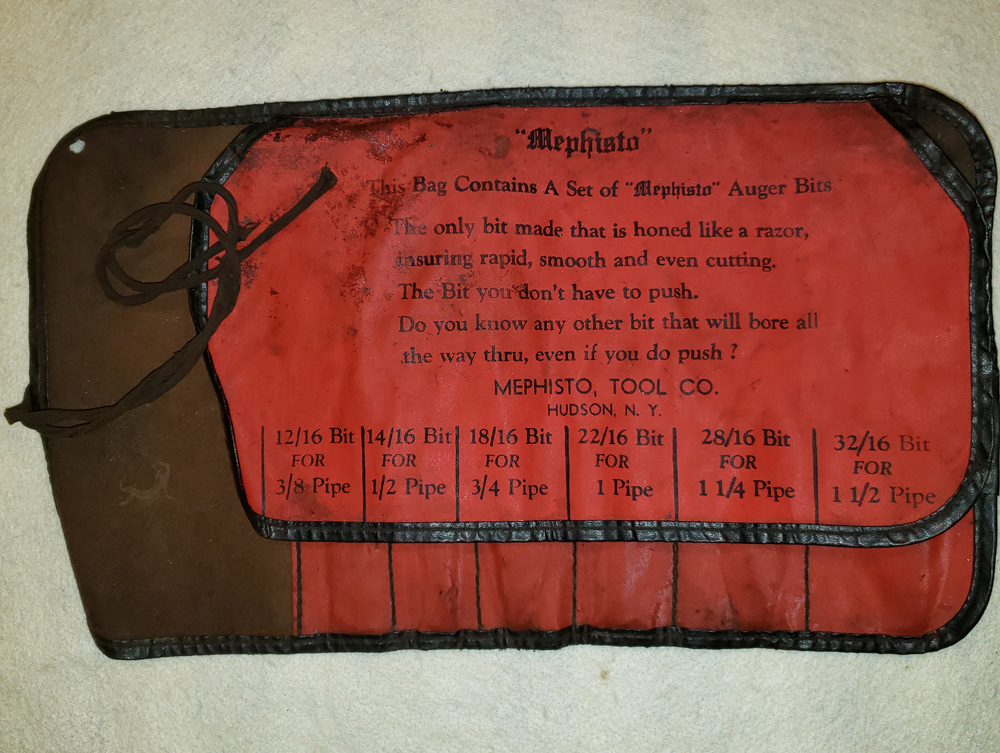 "Mephisto"
This Bag Contains A Set of "Mephisto" Auger Bits
The only bit made that is honed like a razor,
insuring rapid, smooth and even cutting.
The Bit you don't have to push.
Do you know any other bit that will bore all
the way thru, even if you do push ?
MEPHISTO, TOOL CO.
HUDSON, N. Y.
12/16 Bit 14/16 Bit 18/16 Bit 22/16 Bit 28/16 Bit 32/16 Bit
FOR FOR FOR FOR FOR FOR
3/8 Pipe 1/2 Pipe 3/4 Pipe 1 Pipe 1 1/4 Pipe 1 1/2 Pipe